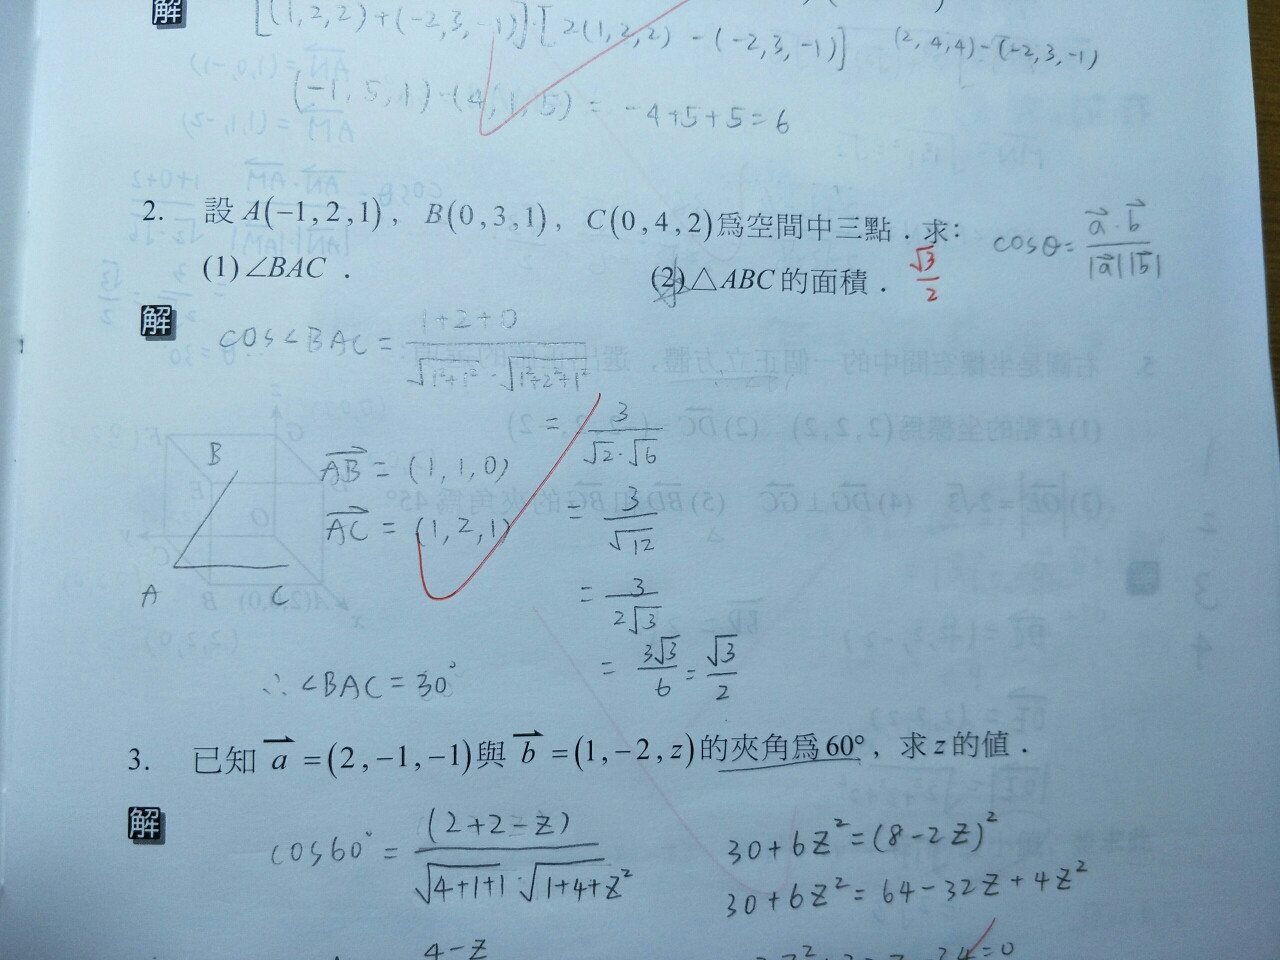 解 [(1,2,2)+(-2,3,-1)]·[2(1,2,2)-(-2,3,-1)] (2,4,4)-(-2,3,-1)
(-1,5,1)·(4,1,5) = -4+5+5=6
2. 設A(-1,2,1), B(0,3,1), C(0,4,2)為空間中三點.求: cosθ= a⃗·b⃗ / |a⃗||b⃗|
(1)∠BAC. (2)△ABC的面積. √3/2
解 cos∠BAC = 1+2+0 / √1²+1² · √1²+2²+1²
= 3 / √2·√6
B AB⃗ = (1,1,0)
= 3/√12
AC⃗ = (1,2,1)
A C = 3/2√3
= 3√3/6 = √3/2
∴∠BAC=30°
3. 已知 a⃗=(2,-1,-1)與 b⃗=(1,-2,z)的夾角為60°, 求z的值.
解 cos60° = (2+2-z) / √4+1+1·√1+4+z² 30+6z²=(8-2z)²
30+6z²=64-32z+4z²
4-z